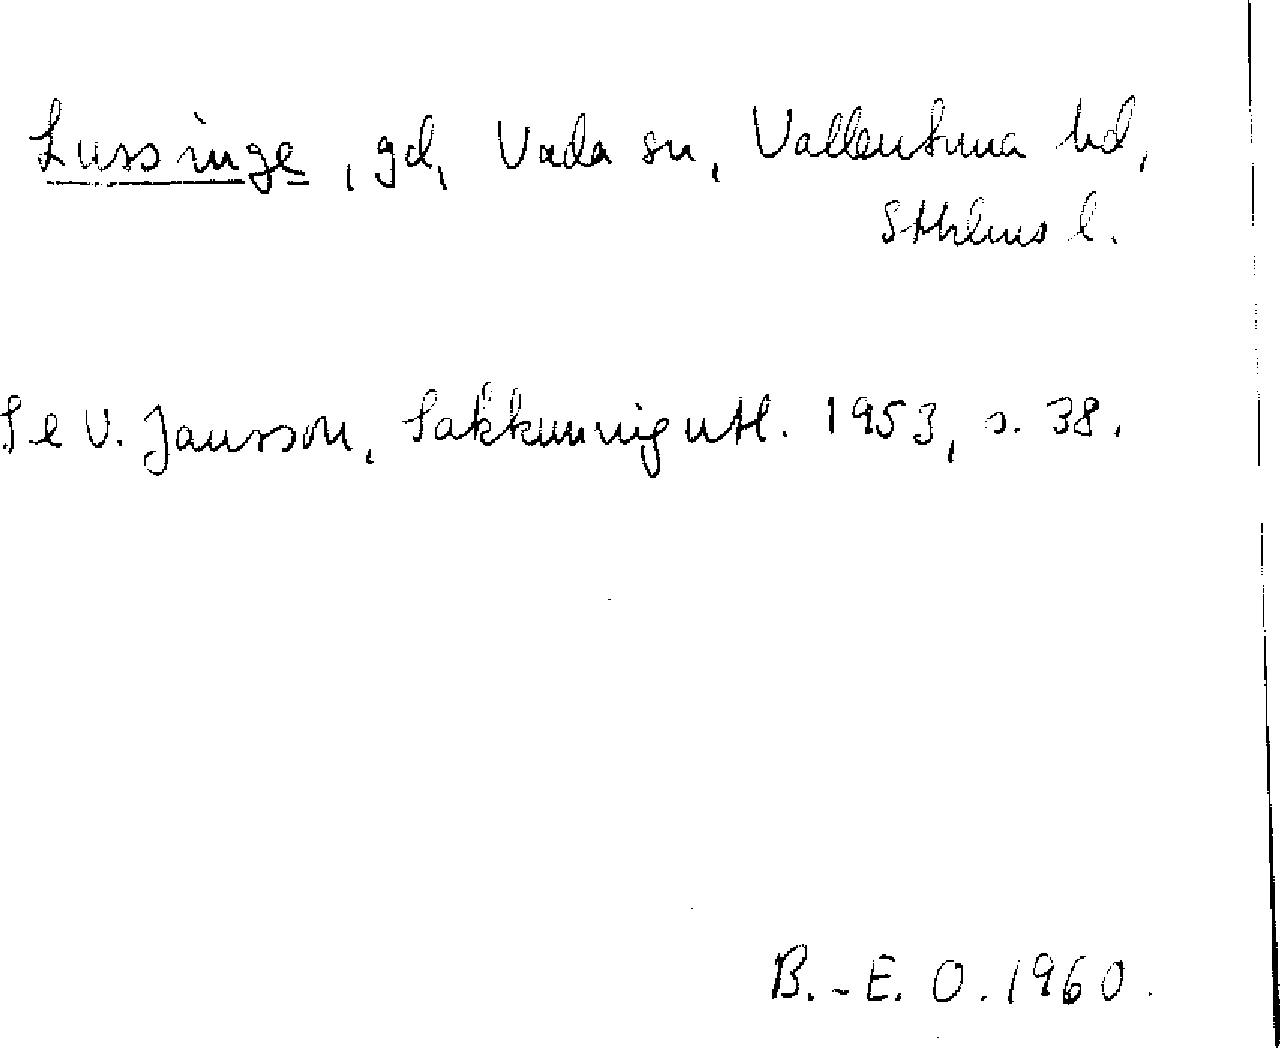 Lussinge, gd, Vada sn, Vallentuna hd,
Sthlms l.
Se V. Jansson, Sakkunnigutl. 1953, s. 38.
B.-E. O. 1960.